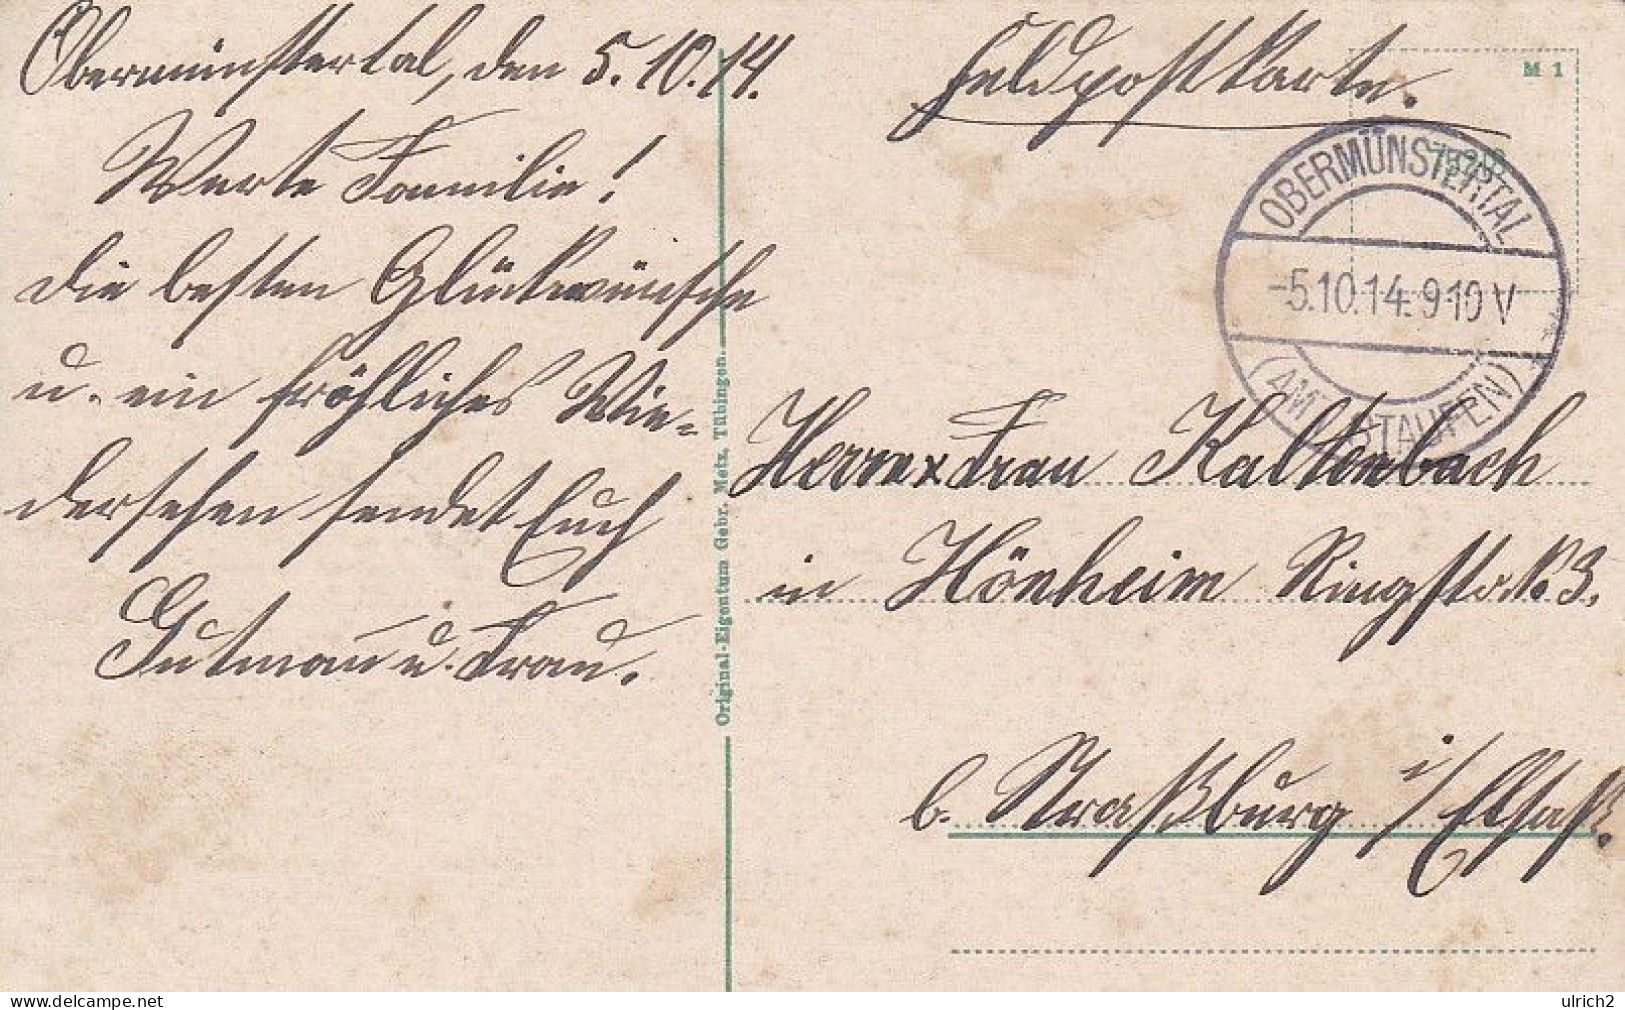 Obermünstertal, den 5.10.14.
Werte Familie!
die besten Glückwünsche
u. ein fröhliches Wie-
dersehen sendet Euch
Gutmann u. Frau.
Original-Eigentum Gebr. Metz, Tübingen.
Feldpostkarte.
M 1
OBERMÜNSTERTAL
-5.10.14. 9-10 V
(AMT STAUFEN)
Herrn x Frau Kaltenbach
in Hönheim Ringstr. No 3.
b. Straßburg i/Elsaß.
ulrich2
delcampe.net